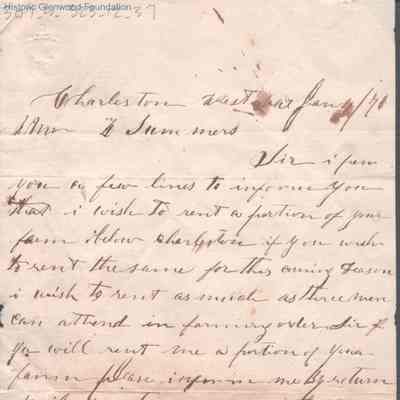 Historic Glenwood Foundation
Charleston West Va Jan /71
Summers
Sir i pen
you a few lines to informe you
that i wish to rent a portion of your
farm below charleston if you wish
to rent the same for this coming season
i wish to rent as much as three men
can attend in farming order Sir if
yo will rent me a portion of your
farm please inform me by return